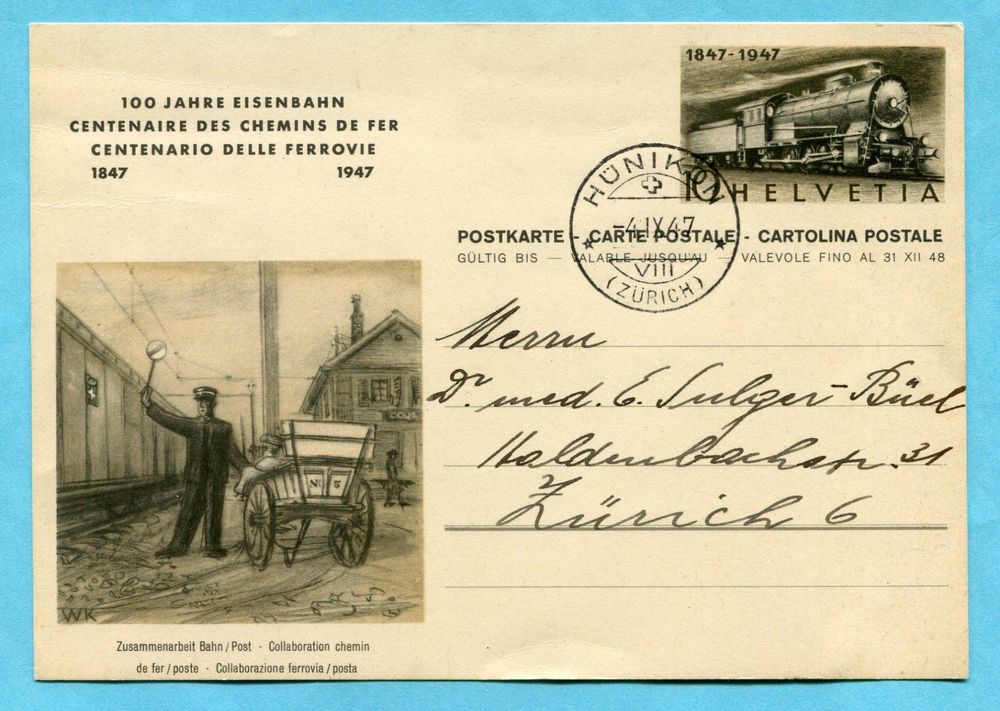 100 JAHRE EISENBAHN
CENTENAIRE DES CHEMINS DE FER
CENTENARIO DELLE FERROVIE
1847 1947
1847-1947
10 HELVETIA
HÜNIKON
-4.IX.47
VIII
(ZÜRICH)
POSTKARTE - CARTE POSTALE - CARTOLINA POSTALE
GÜLTIG BIS — VALABLE JUSQU'AU — VALEVOLE FINO AL 31 XII 48
Herrn
Dr. med. E. Sulger-Büel
Haldenbachstr. 31
Zürich 6
No 5
WK
Zusammenarbeit Bahn / Post · Collaboration chemin
de fer / poste · Collaborazione ferrovia / posta